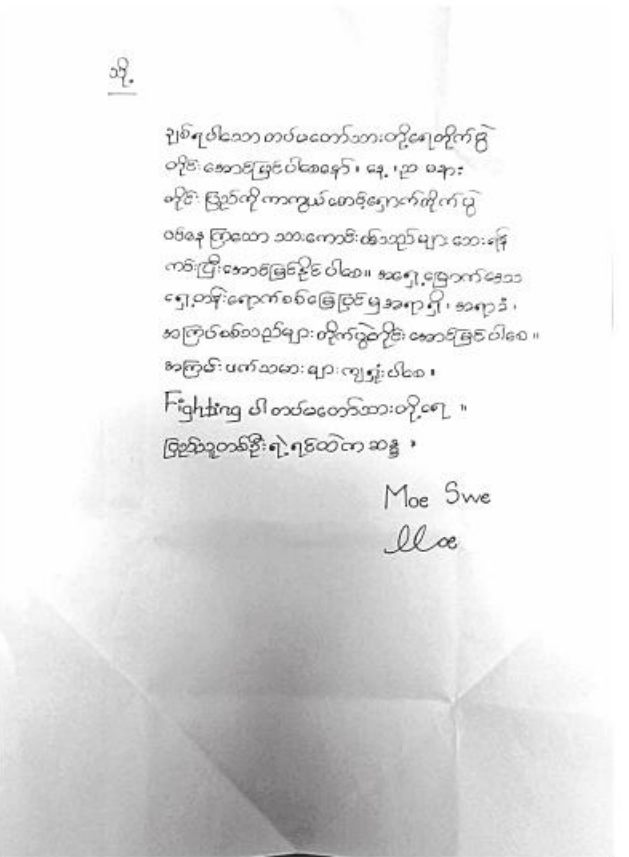 သို့
ချစ်ရပါသော တပ်မတော်သားတို့ရေတိုက်ပွဲ
တိုင်း အောင်မြင်ပါစေနော်၊ နေ့၊ည မနား
တိုင်း ပြည်ကို ကာကွယ်စောင့်ရှောက်တိုက်ပွဲ
ဝင်နေ ကြသော သားကောင်း စစ်သည်များ ဘေးရန်
ကင်းပြီးအောင်မြင်နိုင်ပါစေ။ အရှေ့မြောက်ဒေသ
ရှေ့တန်းရောက်စစ်မြေပြင်မှအရာရှိ၊ အရာခံ၊
အကြပ်စစ်သည်များ တိုက်ပွဲတိုင်း အောင်မြင်ပါစေ။
အကြမ်းဖက်သမားများကျရှုံးပါစေ၊
Fighting ပါ တပ်မတော်သားတို့ရေ ။
ပြည်သူတစ်ဦးရဲ့ရင်ထဲကဆန္ဒ ၊
Moe Swe
Moe